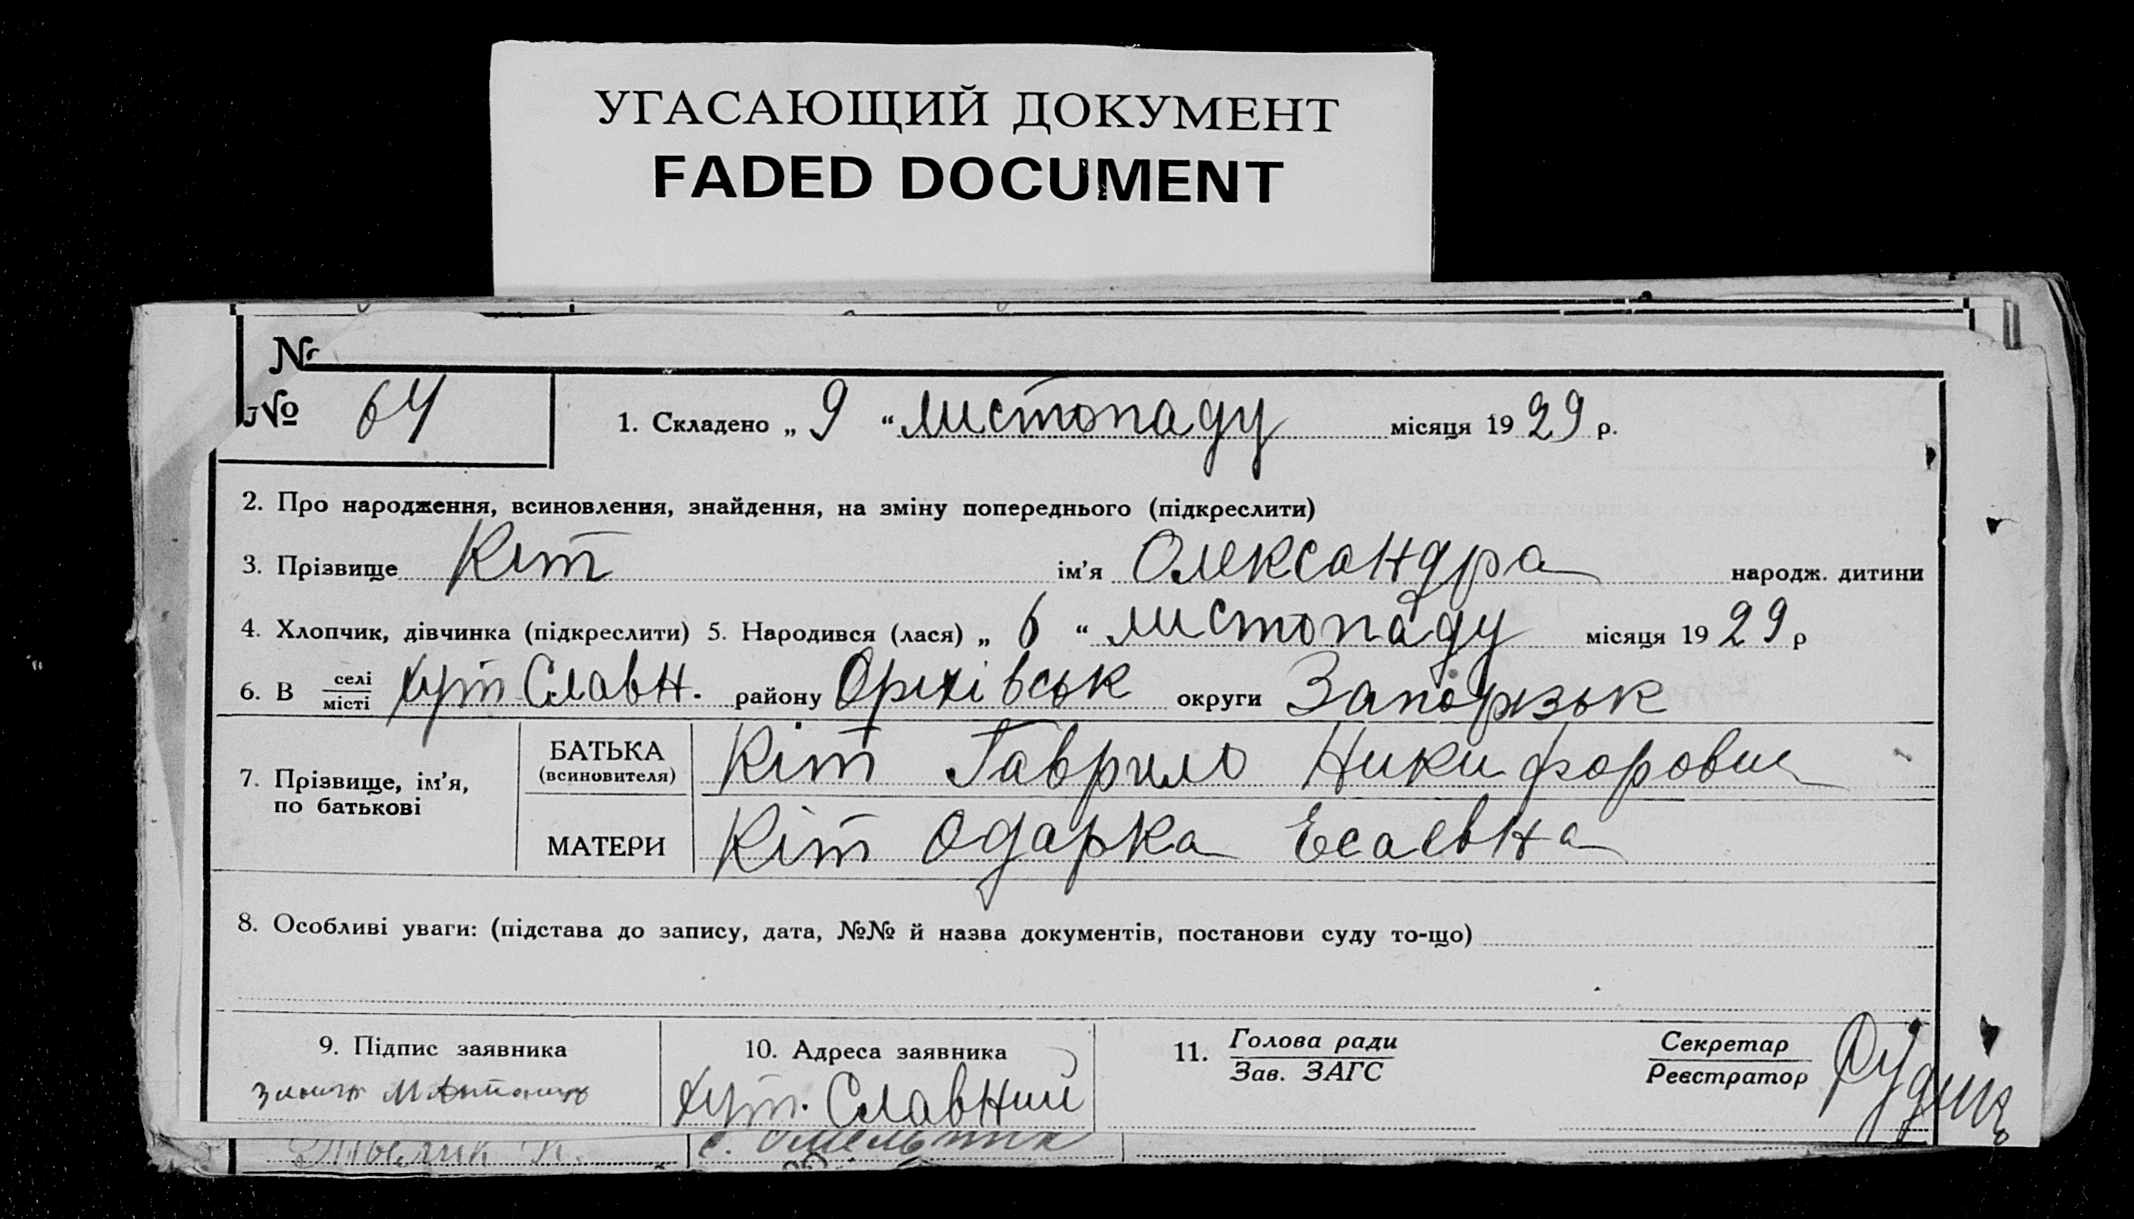 УГАСАЮЩИЙ ДОКУМЕНТ
FADED DOCUMENT
№
№ 64
1. Складено „ 9 “ листопаду місяця 1929 р.
2. Про народження, всиновлення, знайдення, на зміну попереднього (підкреслити)
3. Прізвище Кіт ім'я Олександра народж. дитини
4. Хлопчик, дівчинка (підкреслити) 5. Народився (лася) „ 6 “ листопаду місяця 1929 р
6. В селі/місті хут Славн. району Оріхівськ округи Запорізьк
7. Прізвище, ім'я, по батькові
БАТЬКА (всиновителя) Кіт Гаврило Никифорович
МАТЕРИ Кіт Одарка Есаевна
8. Особливі уваги: (підстава до запису, дата, №№ й назва документів, постанови суду то-що)
9. Підпис заявника
10. Адреса заявника
хут. Славний
11. Голова ради/Зав. ЗАГС
Секретар/Реєстратор
с. Омельник